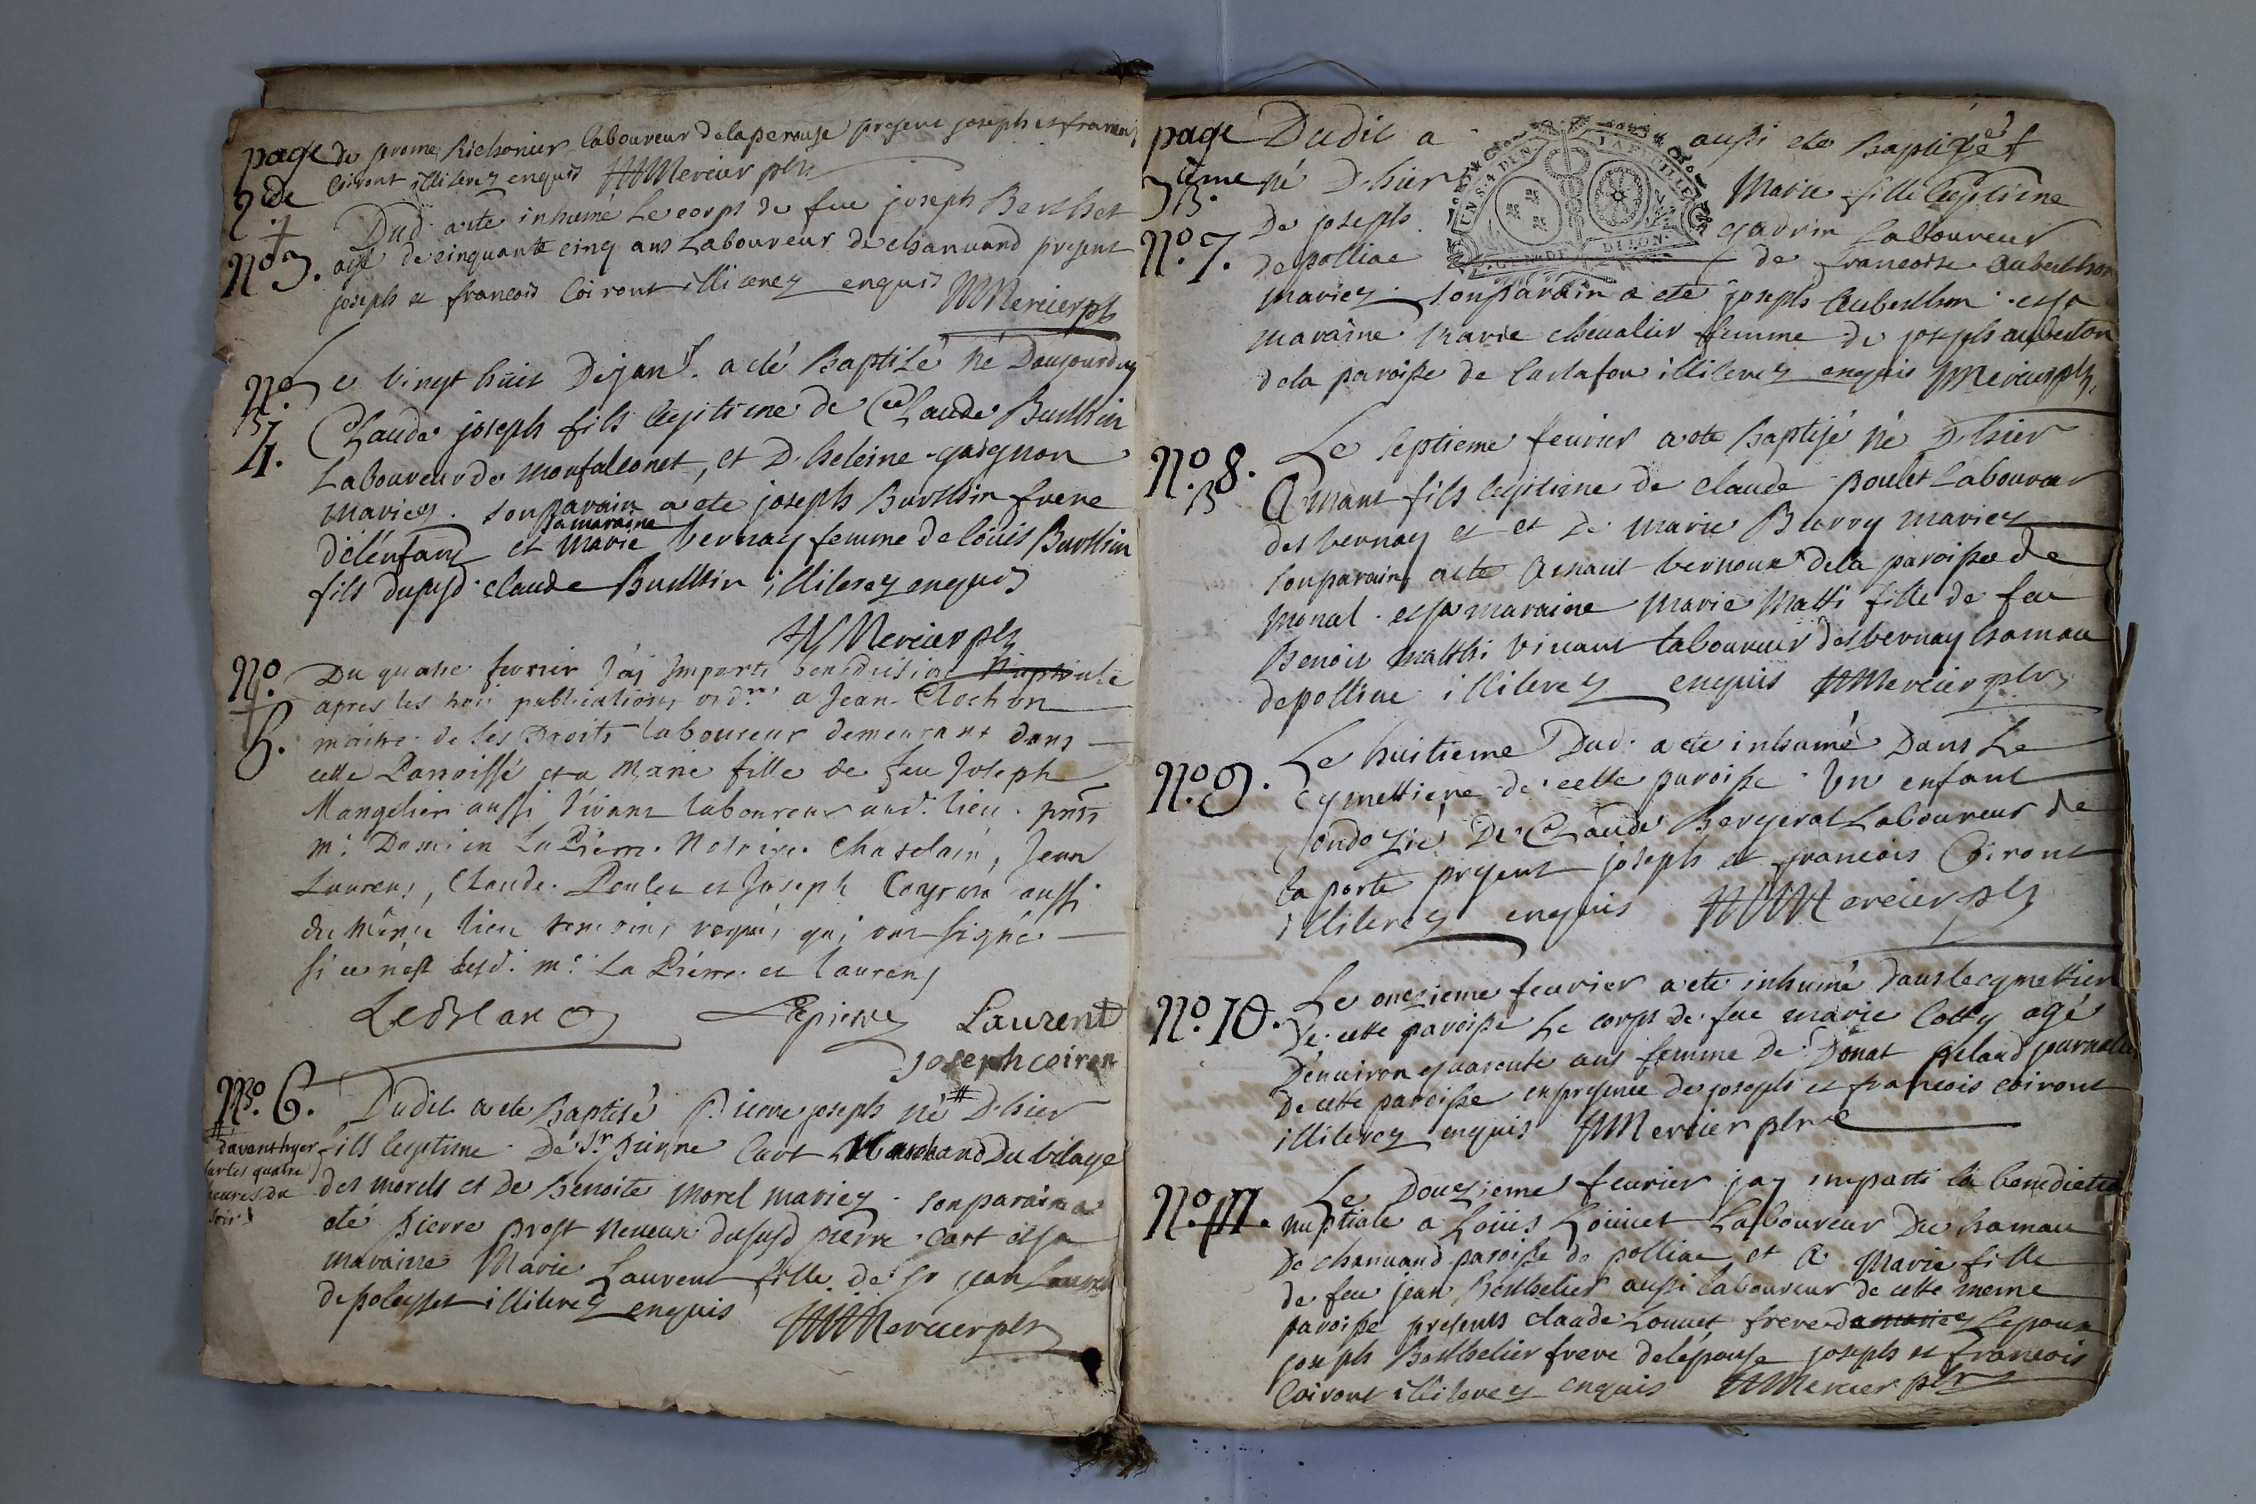 page
2de
de Jerome Richonier laboureur de la perouse present joseph et francois
Coiront illiterez enquis Mercier ptr
+
No 3.
Dud. a ete inhumé le corps de feu joseph Berthet
agé de cinquante cinq ans Laboureur de chanvand present
joseph et francois Coiront illiterez enquis Mercier ptr
No
B
4.
Le vingt huit de janr. a eté Baptisé né Daujourduy
Claude joseph fils legitime de Claude Burthin
Laboureur de monfalconet, et D'heleine gaignon
mariez. son parain a ete joseph Burthin frere
sa maraine
délenfant et marie vernay femme de loüis Burthin
fils dususd. claude Burthin illiterez enquis
Mercier ptr
No
+
5.
Du quatre fevrier J'ai Imparti benediction Nuptiale
apres les trois publications ord.res a Jean Clochon
maitre de ses Droits laboureur demeurant dans
cette Parroisse et a Marie fille de feu Joseph
Mangelier aussi vivant laboureur aud. lieu. pnts
me. Damien La Pierre Notaire Chatelain, Jean
Laurens, Claude Poulet et Joseph Coyron aussi
du même lieu temoins requis qui ont signé
si ce n'est lesd. me. La Pierre et laurens
Leblanc Lapierre Laurent
joseph coiron
No. 6.
B
Dudit a ete Baptisé Pierre joseph né # D'hier
# d'avant hyer
sur les quatre
heures du
soir
fils legitime De Sr. pierre Cart Marchand Du vilage
des morels et de Benoite morel mariez. son parain a
eté pierre prost neveux dususd pierre Cart et sa
maraine Marie Laurent fille de Sr jean Laurent
de poleysset illiterez enquis Mercier ptr
page
3eme
B.
No. 7.
Dudit a aussi ete Baptizéet
né D'hier Marie fille legitime
De joseph gadrin Laboureur
de polliac de francoise auberthon
mariez. son parain a eté joseph Auberthon et sa
maraine Marie chevalier femme de joseph auberton
dela paroisse de Curtafon illiterez enquis Mercier ptr
UNS. 4 DEN. LA FEUILLE
GEN. DE DIJON
No. 8.
B
Le septieme fevrier a ete baptisé né D'hier
Amant fils legitime de claude Poulet Laboureur
des vernay et et de marie Burry mariez
son parain a ete Amant vernoux dela paroisse de
monal. et sa maraine marie Matti fille de feu
Benoit matthi vivant laboureur des vernay hamau
de polliac illiterez enquis Mercier ptr
No. 9.
Le huitieme Dud. a ete inhumé Dans Le
Cymettiere de cette paroisse Un enfant
ondoyié De Claude Bergerat Laboureur de
la porte present joseph et francois Coiront
illiterez enquis Mercier ptr
No. 10.
Le onezieme fevrier a ete inhumé dans le cymettier
de cette paroisse Le corps de feue marie Cotty agé
D'environ quarente ans femme de Donat pelaud journalier
De cette paroisse en presence de joseph et francois coiront
illiterez enquis Mercier ptre
No. 11.
Le Douzieme fevrier jay imparti la benediction
nuptiale a Loüis Loüuet Laboureur Du hamau
De chanuand paroisse de polliac et a Marie fille
de feu jean Berthelier aussi laboureur de cette meme
paroisse presents claude Louuet frere de marie Lepoux
joseph Berthelier frere delépouse joseph et francois
Coiront illiterez enquis Mercier ptr